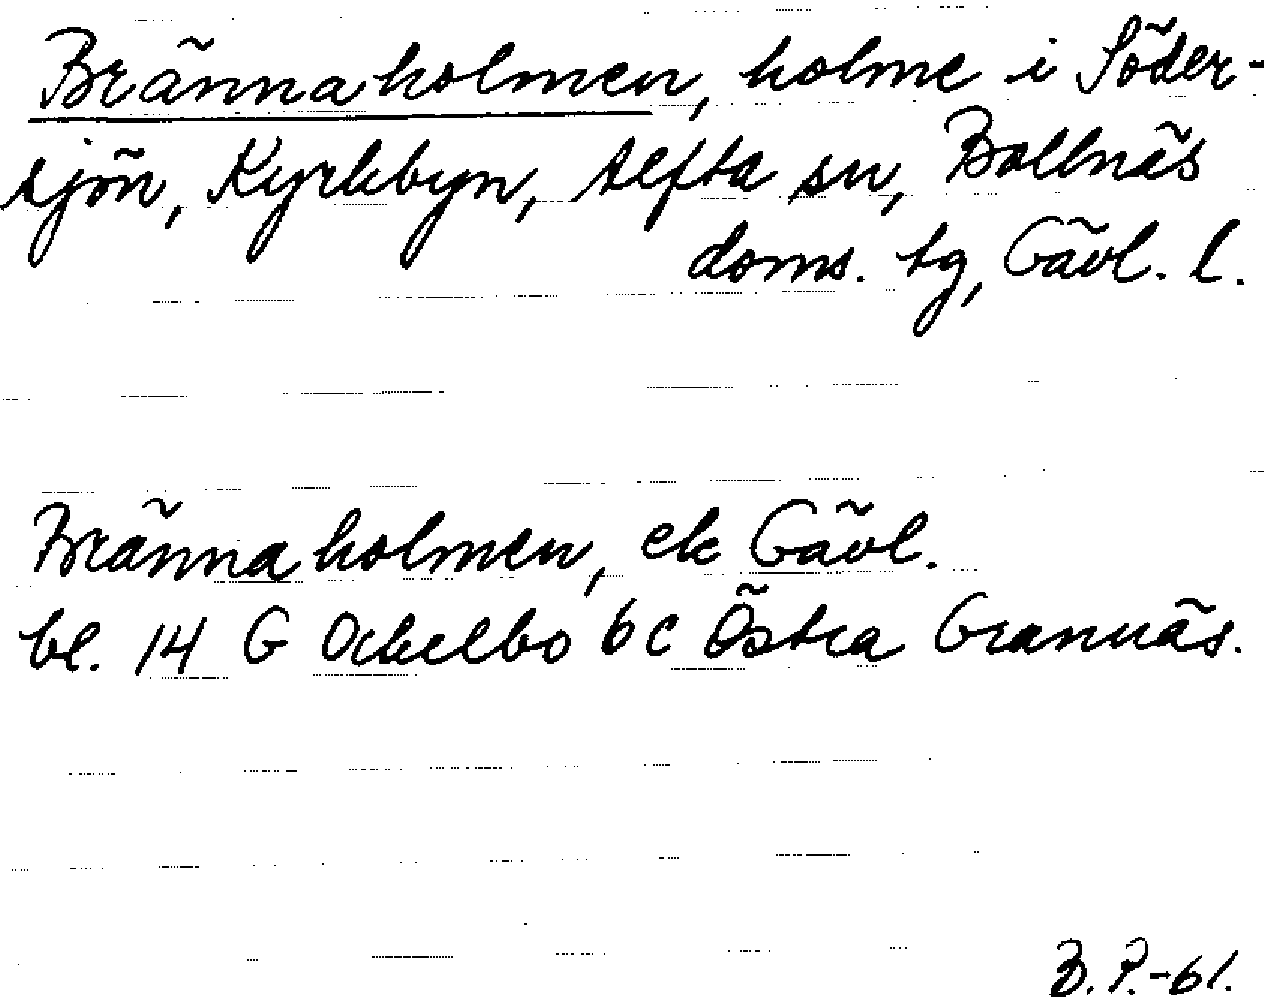 Brännaholmen, holme i Söder-
sjön, Kyrkbyn, Alfta sn, Bollnäs
doms. tg, Gävl. l.
Brännaholmen, ek Gävl.
bl. 14 G Ockelbo 6c Östra Grannäs.
B.P.-61.